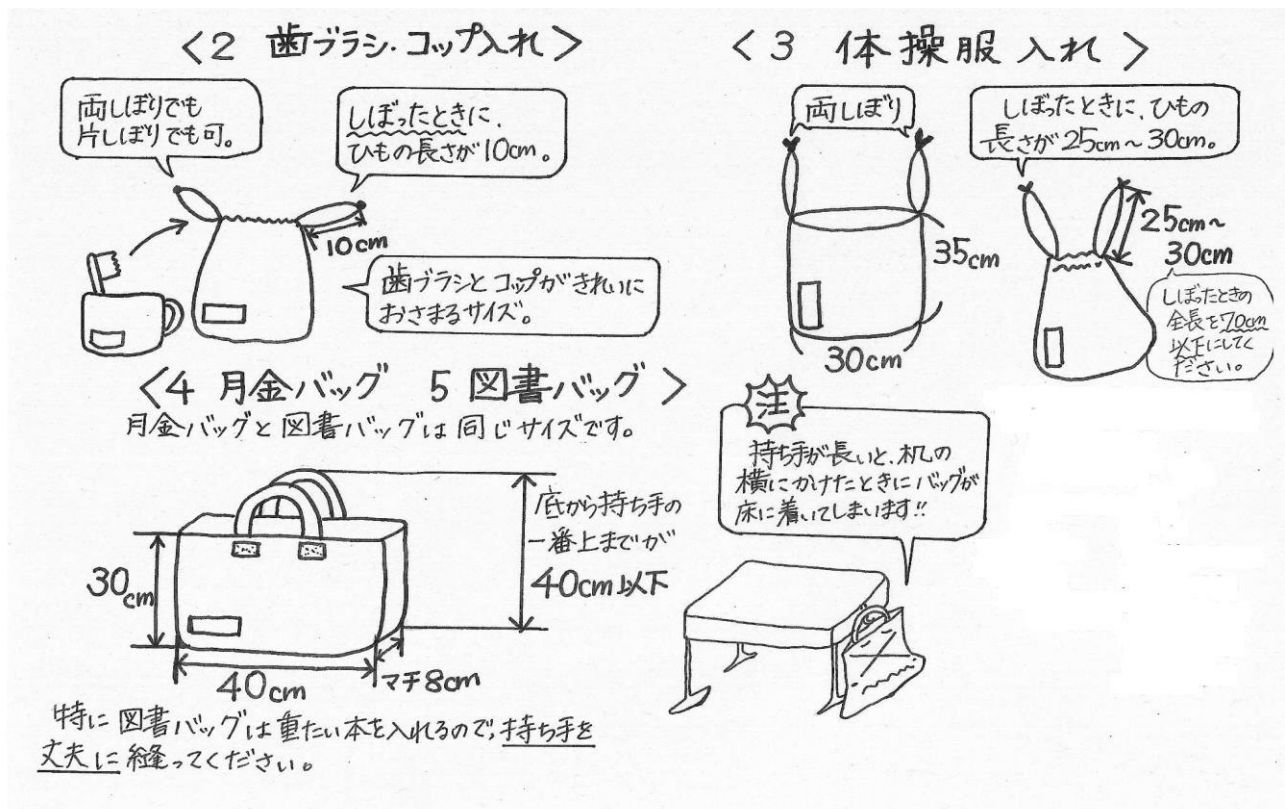 〈2 歯ブラシ・コップ入れ〉
両しぼりでも
片しぼりでも可。
しぼったときに、
ひもの長さが10cm。
10cm
歯ブラシとコップがきれいに
おさまるサイズ。
〈3 体操服入れ〉
両しぼり
しぼったときに、ひもの
長さが25cm～30cm。
35cm
30cm
25cm～
30cm
しぼったときの
全長を70cm
以下にしてく
ださい。
〈4 月金バッグ 5 図書バッグ〉
月金バッグと図書バッグは同じサイズです。
30cm
40cm
マチ8cm
底から持ち手の
一番上までが
40cm以下
特に図書バッグは重たい本を入れるので、持ち手を
丈夫に縫ってください。
注
持ち手が長いと、机の
横にかけたときにバッグが
床に着いてしまいます!!